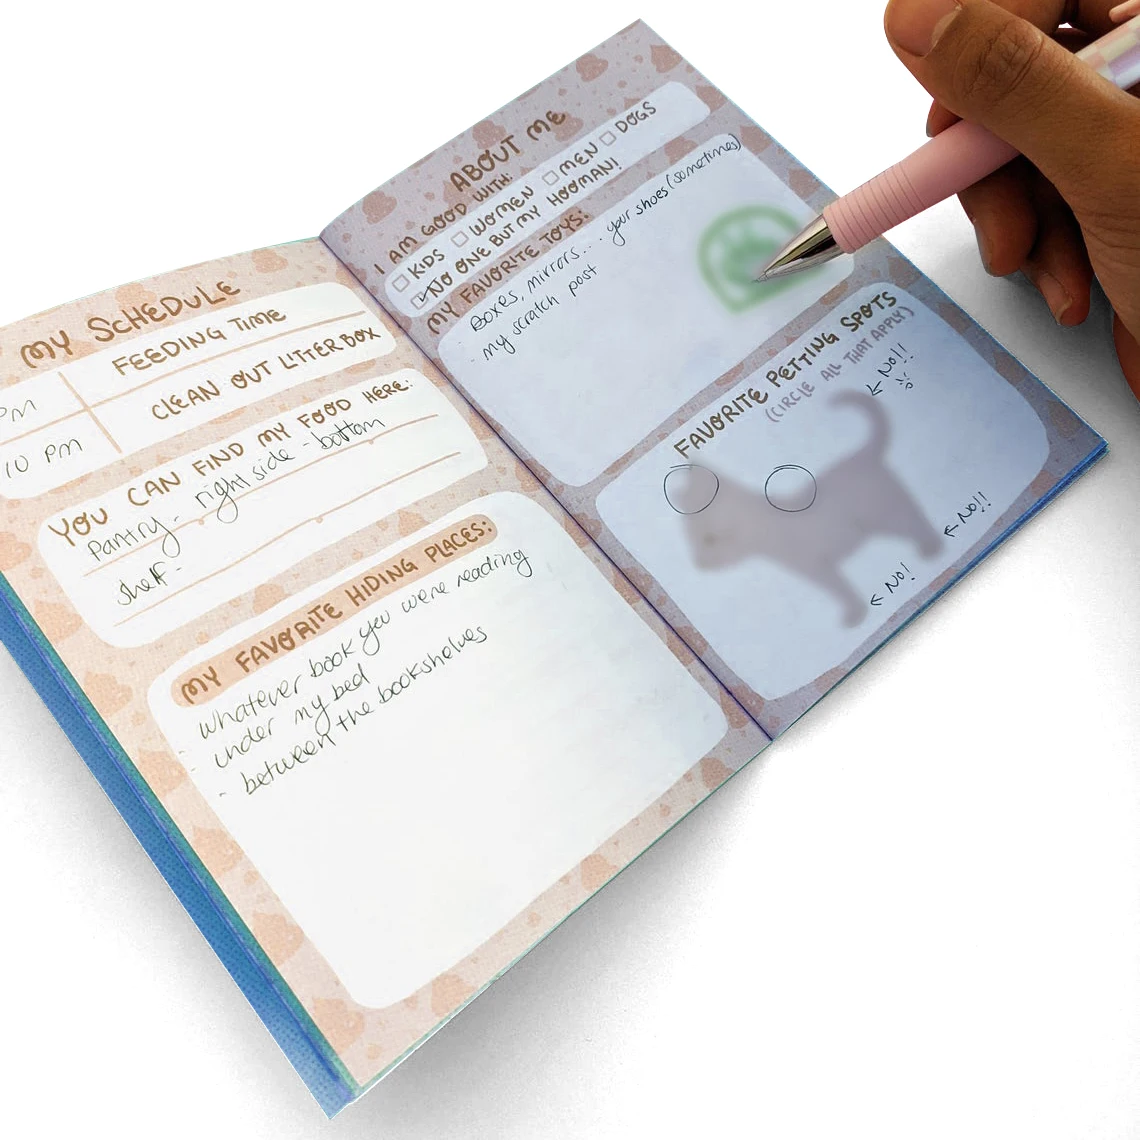 MY SCHEDULE
PM FEEDING TIME
10 PM CLEAN OUT LITTER BOX
YOU CAN FIND MY FOOD HERE:
Pantry - right side - bottom
shelf -
MY FAVORITE HIDING PLACES:
- whatever book you were reading
- under my bed
- between the bookshelves
ABOUT ME
I AM GOOD WITH:
KIDS WOMEN MEN DOGS
NO ONE BUT MY HOOMAN!
MY FAVORITE TOYS:
- Boxes, mirrors... your shoes (sometimes)
- my scratch post
FAVORITE PETTING SPOTS
(CIRCLE ALL THAT APPLY)
← NO!!
← NO!!
← NO!